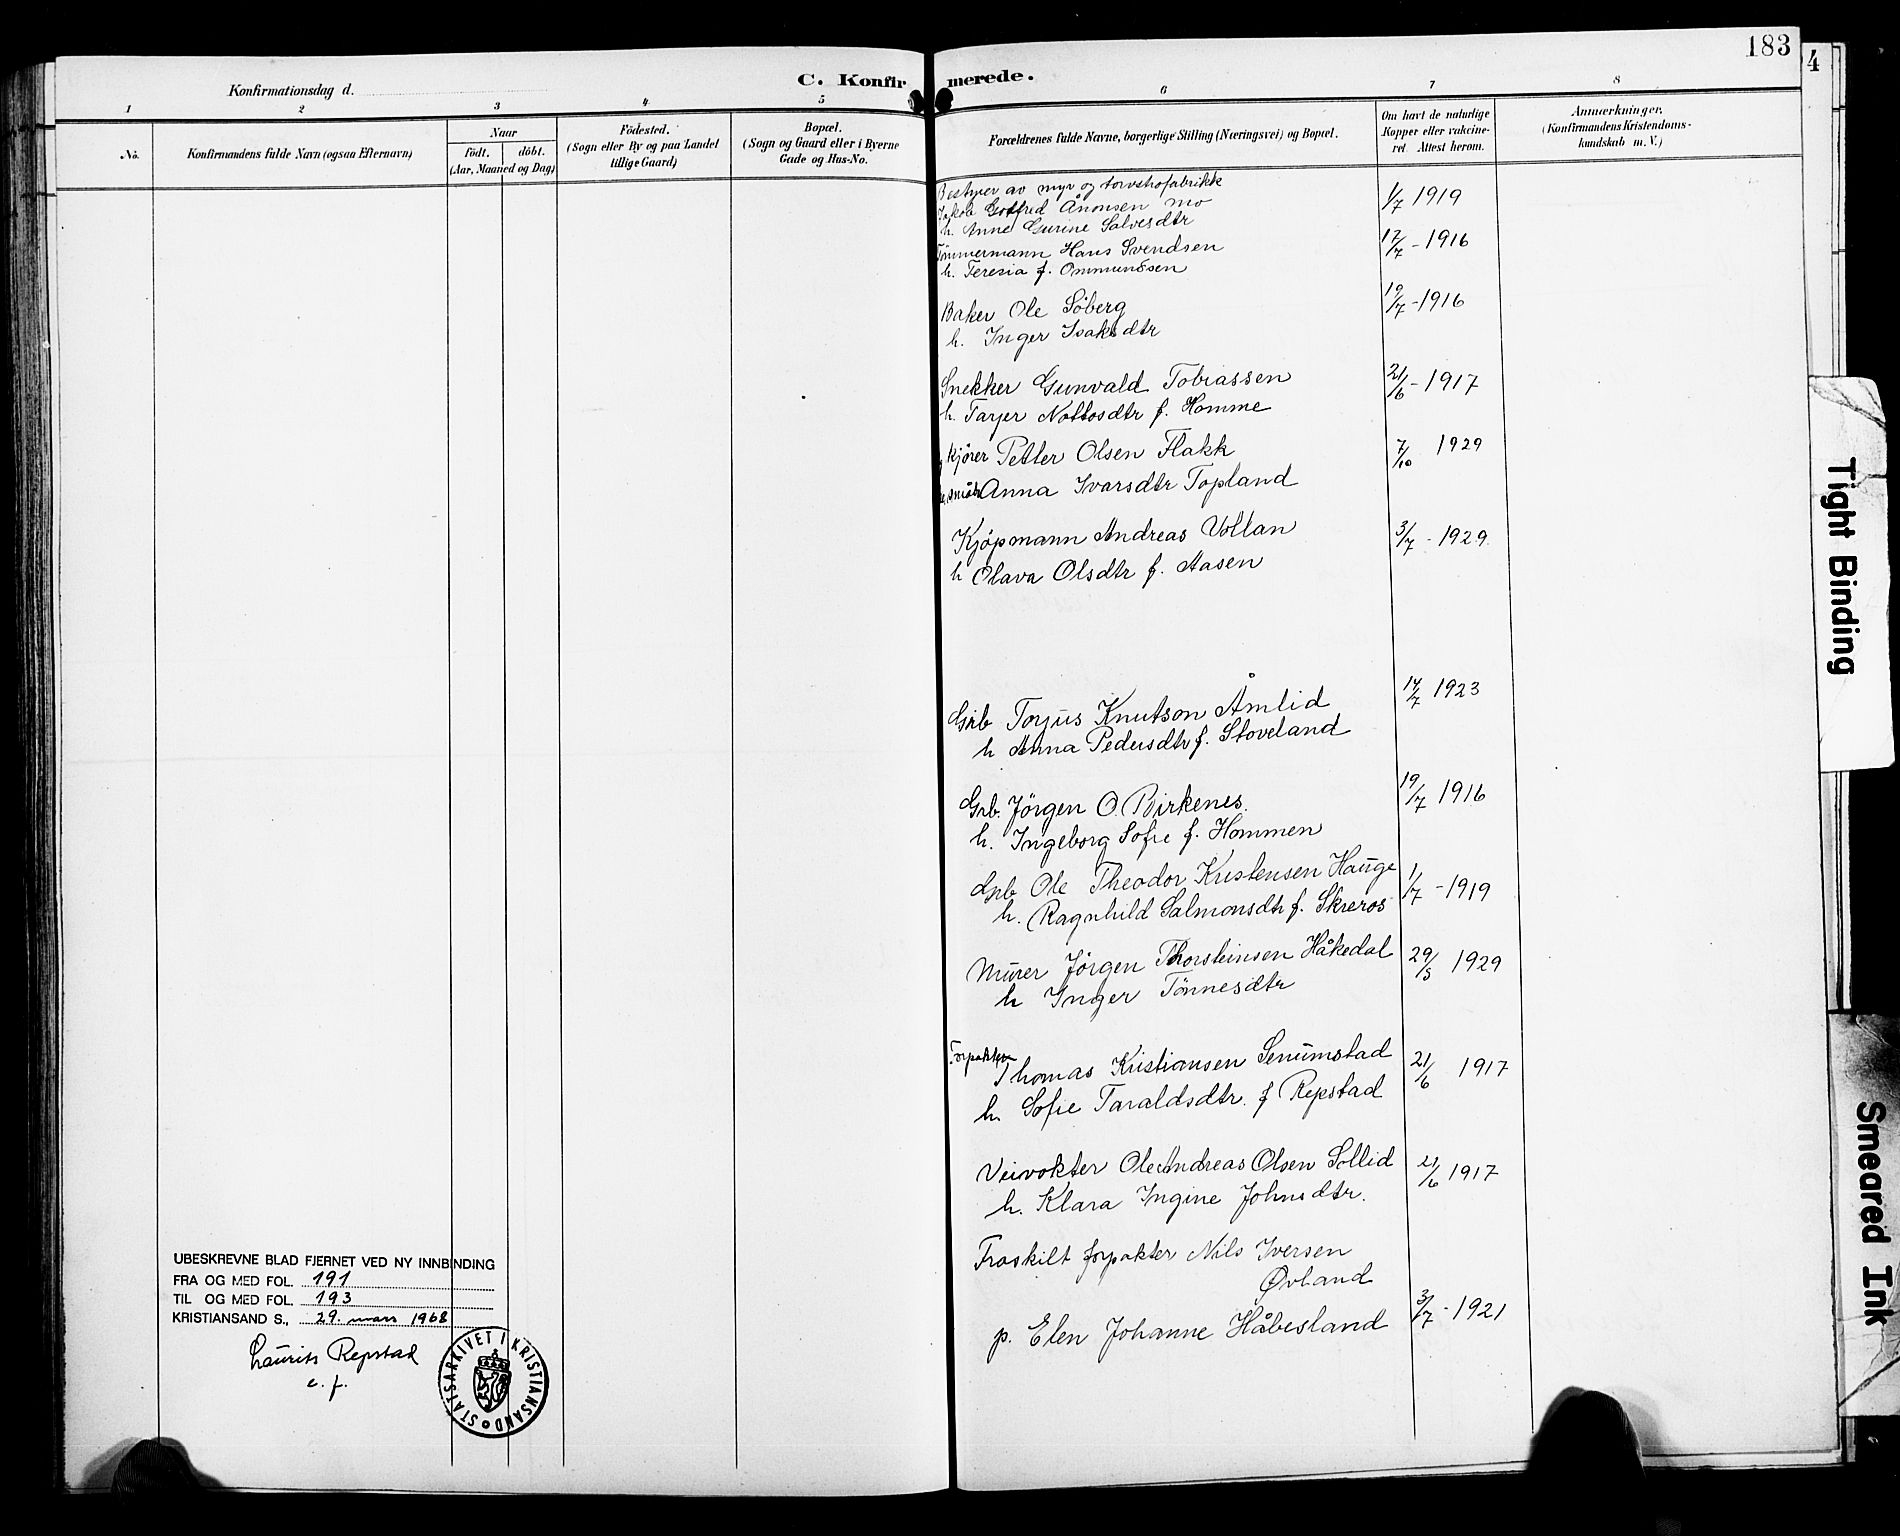 183
4
C. Konfirmerede.
Konfirmationsdag d.
1 2 3 4 5 6 7 8
No.
Konfirmandens fulde Navn (ogsaa Efternavn)
Naar
födt. döbt.
(Aar, Maaned og Dag)
Födested.
(Sogn eller By og paa Landet
tillige Gaard)
Bopæl.
(Sogn og Gaard eller i Byerne
Gade og Hus-No.
Forældrenes fulde Navne, borgerlige Stilling (Næringsvei) og Bopæl.
Om havt de naturlige
Kopper eller vakcine-
ret. Attest herom.
Anmærkninger.
(Konfirmandens Kristendoms-
kundskab m. V.)
Bestyrer av myr og torvstrøfabrikk
Jakob Gotfred Ånonsen Mo 1/7 1919
h. Anne Gurine Salvesdtr
Tömmermann Hans Svendsen 17/7 - 1916
h. Teresia f. Ommundsen
Baker Ole Söberg 19/7 - 1916
h. Inger Isaksdtr
Snekker Gunvald Tobiassen 21/6 - 1917
h. Tarjer Nottosdtr f. Homme
kjörer Petter Olsen Flakk 7/10 1929
Anna Ivarsdtr Topland
Kjöpmann Andreas Vollan 3/7 - 1929
h Olava Olsdtr f. Aasen
Grb Torjus Knutson Åmlid 14/7 1923
h Anna Pedersdtr f. Stoveland
Grb. Jörgen O. Birkenes. 19/7 1916
h. Ingeborg Sofie f. Hommen
Grb Ole Theodor Kristensen Hauge 1/7 - 1919
h. Ragnhild Salmonsdtr f. Skreros
Murer Jörgen Thorsteinsen Håkedal 29/5 1929
h Inger Tönnesdtr
Forpakter
Thomas Kristiansen Senumstad 21/6 1917
h. Sofie Taraldsdtr. f Repstad
Veivokter Ole Andreas Olsen Sollid 21/6 1917
h. Klara Ingine Johnsdtr.
Fraskilt forpakter Nils Iversen
Øvland
p. Elen Johanne Håbesland 3/7 - 1921
UBESKREVNE BLAD FJERNET VED NY INNBINDING
FRA OG MED FOL. 191
TIL OG MED FOL. 193
KRISTIANSAND S., 29. mars 1968
Laurits Repstad
e. f.
STATSARKIVET I KRISTIANSAND
Tight Binding
Smeared Ink